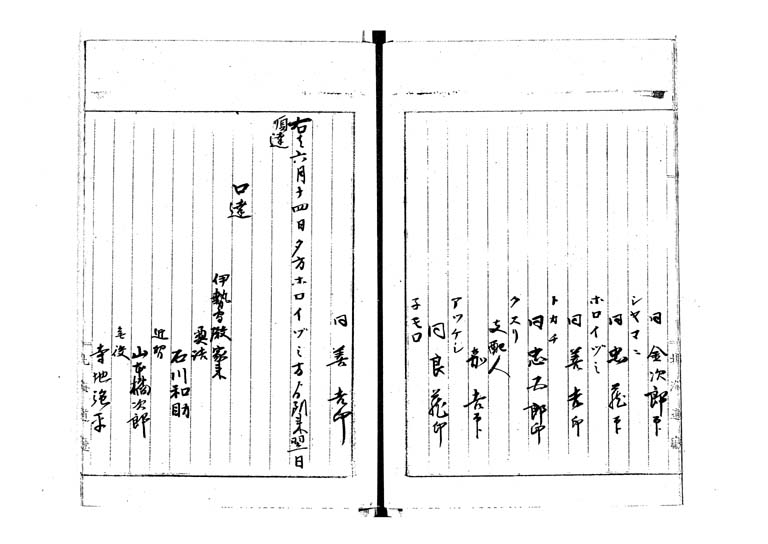 同 金次郎印
シヤマニ
同 忠 蔵印
ホロイヅミ
同 善 吉印
トカチ
同 忠五郎印
クスリ
支配人
嘉 吉印
アツケシ
同 良 蔵印
子モロ
同 善 吉印
右之六月十四日夕方ホロイヅミ方ゟ到来翌日
順達
口達
伊勢守殿家来
石川和助
近習
山本橘次郎
寺地強平